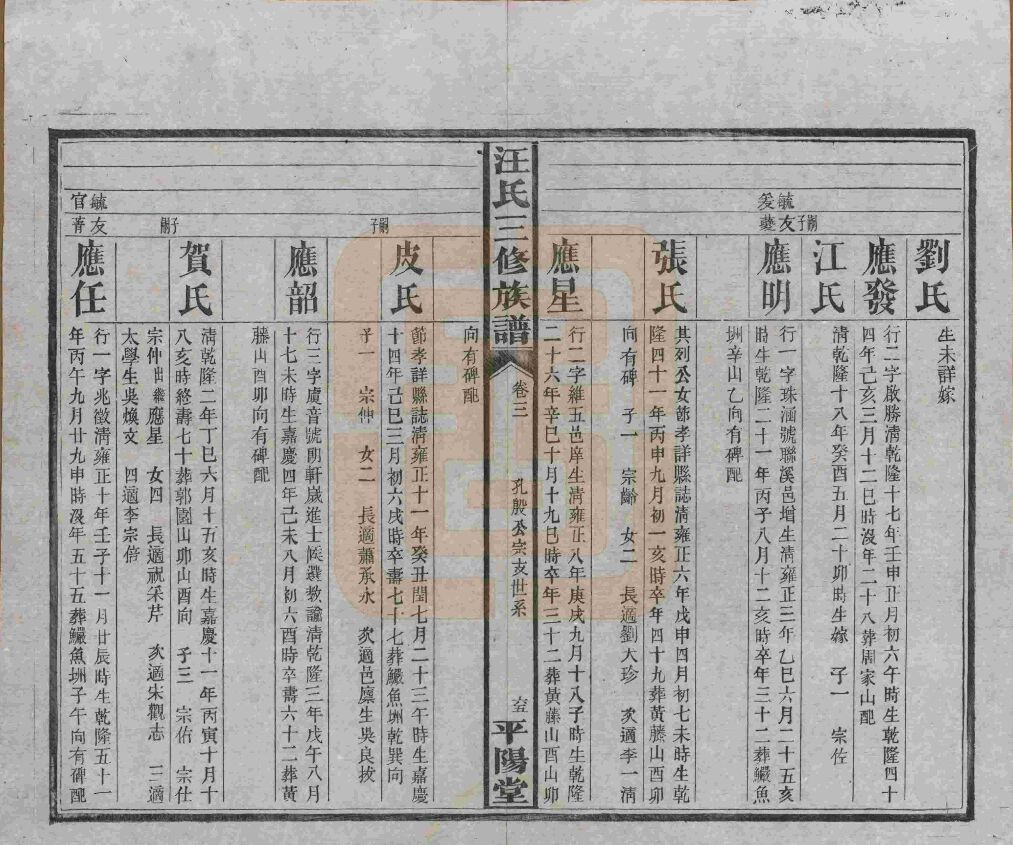 劉氏
生未詳嫁
應發
行二字啟勝清乾隆十七年壬申正月初六午時生乾隆四十
四年己亥三月十二巳時沒年二十八葬周家山配
江氏
清乾隆十八年癸酉五月二十卯時生嫁 子一 宗佐
毓
友嗣子
應明
行一字珠涵號聯溪邑增生清雍正三年乙巳六月二十五亥
時生乾隆二十一年丙子八月十二亥時卒年三十二葬鱖魚
洲辛山乙向有碑配
張氏
其列公女節孝詳縣誌清雍正六年戊申四月初七未時生乾
隆四十一年丙申九月初一亥時卒年四十九葬黃藤山酉卯
向有碑 子一 宗齡 女二 長適劉大珍 次適李一清
應星
行二字維五邑庠生清雍正八年庚戌九月十八子時生乾隆
二十六年辛巳十月十九巳時卒年三十二葬黃藤山酉山卯
汪氏三修族譜
卷三
孔殷公宗支世系
六五
平陽堂
向有碑配
嗣子
皮氏
節孝詳縣誌清雍正十一年癸丑閏七月二十三午時生嘉慶
十四年己巳三月初六戌時卒壽七十七葬鱖魚洲乾巽向
子一 宗仲 女二 長適蕭承永 次適邑廩生吳良掞
應韶
行三字虞音號朗軒歲進士候選教諭清乾隆三年戊午八月
十七未時生嘉慶四年己未八月初六酉時卒壽六十二葬黃
藤山酉卯向有碑配
嗣子
賀氏
清乾隆二年丁巳六月十五亥時生嘉慶十一年丙寅十月十
八亥時終壽七十葬郭園山卯山酉向 子三 宗佑 宗仕
宗仲出繼應星 女四 長適祝采芹 次適宋觀志 三適
太學生吳煥文 四適李宗倍
毓官
友菁
應任
行一字兆徵清雍正十年壬子十一月廿辰時生乾隆五十一
年丙午九月廿九申時沒年五十五葬鱖魚洲子午向有碑配